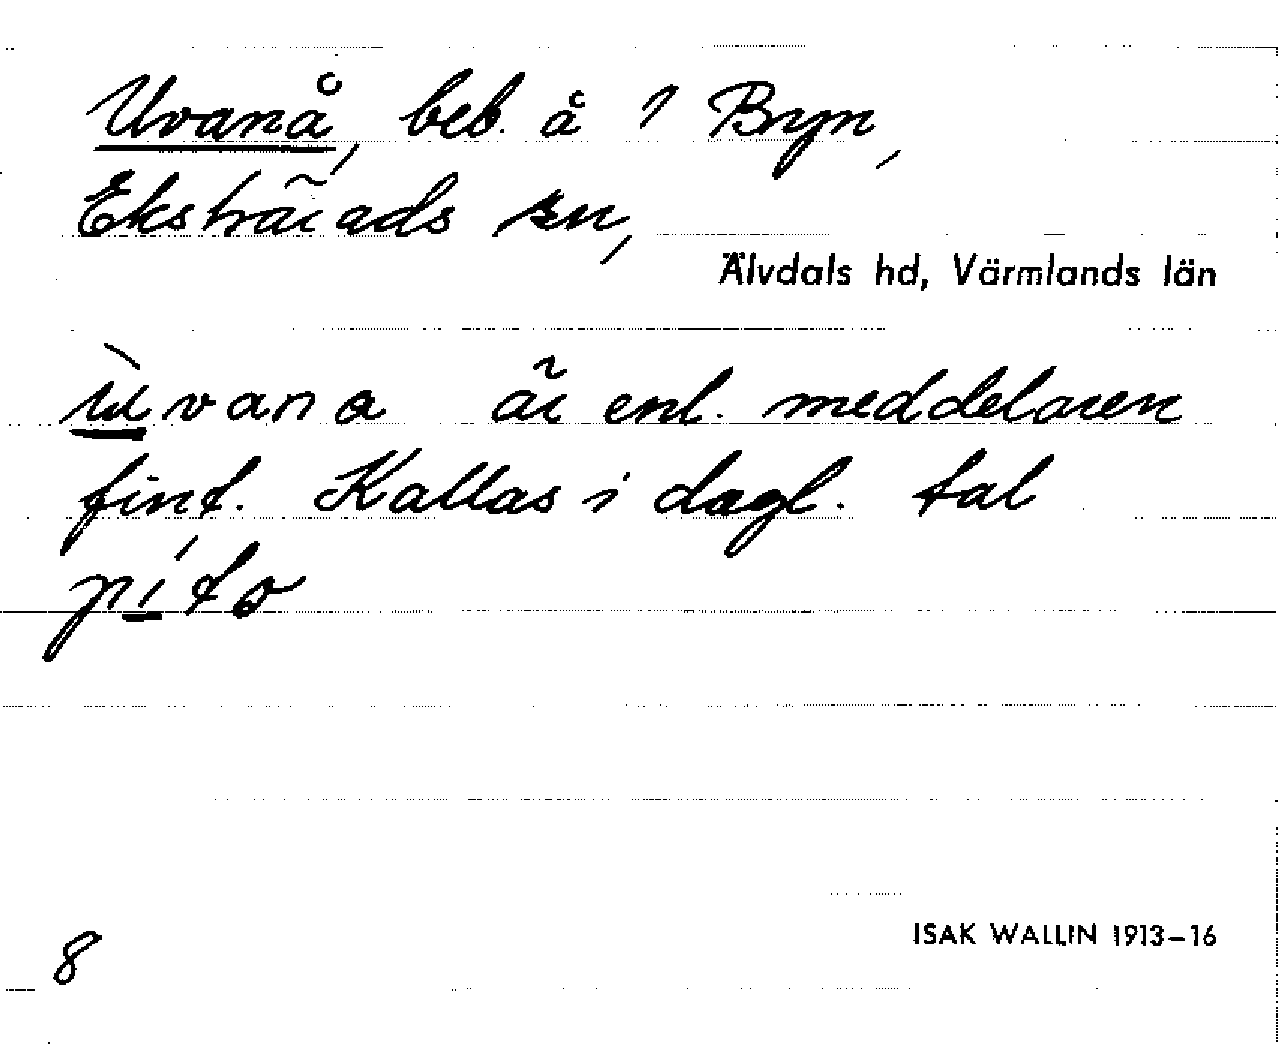 Uvanå, beb. å 1 Byn,
Ekshärads sn,
Älvdals hd, Värmlands län
ùvana är enl. meddelaren
fint. Kallas i dagl. tal
8
ISAK WALLIN 1913–16